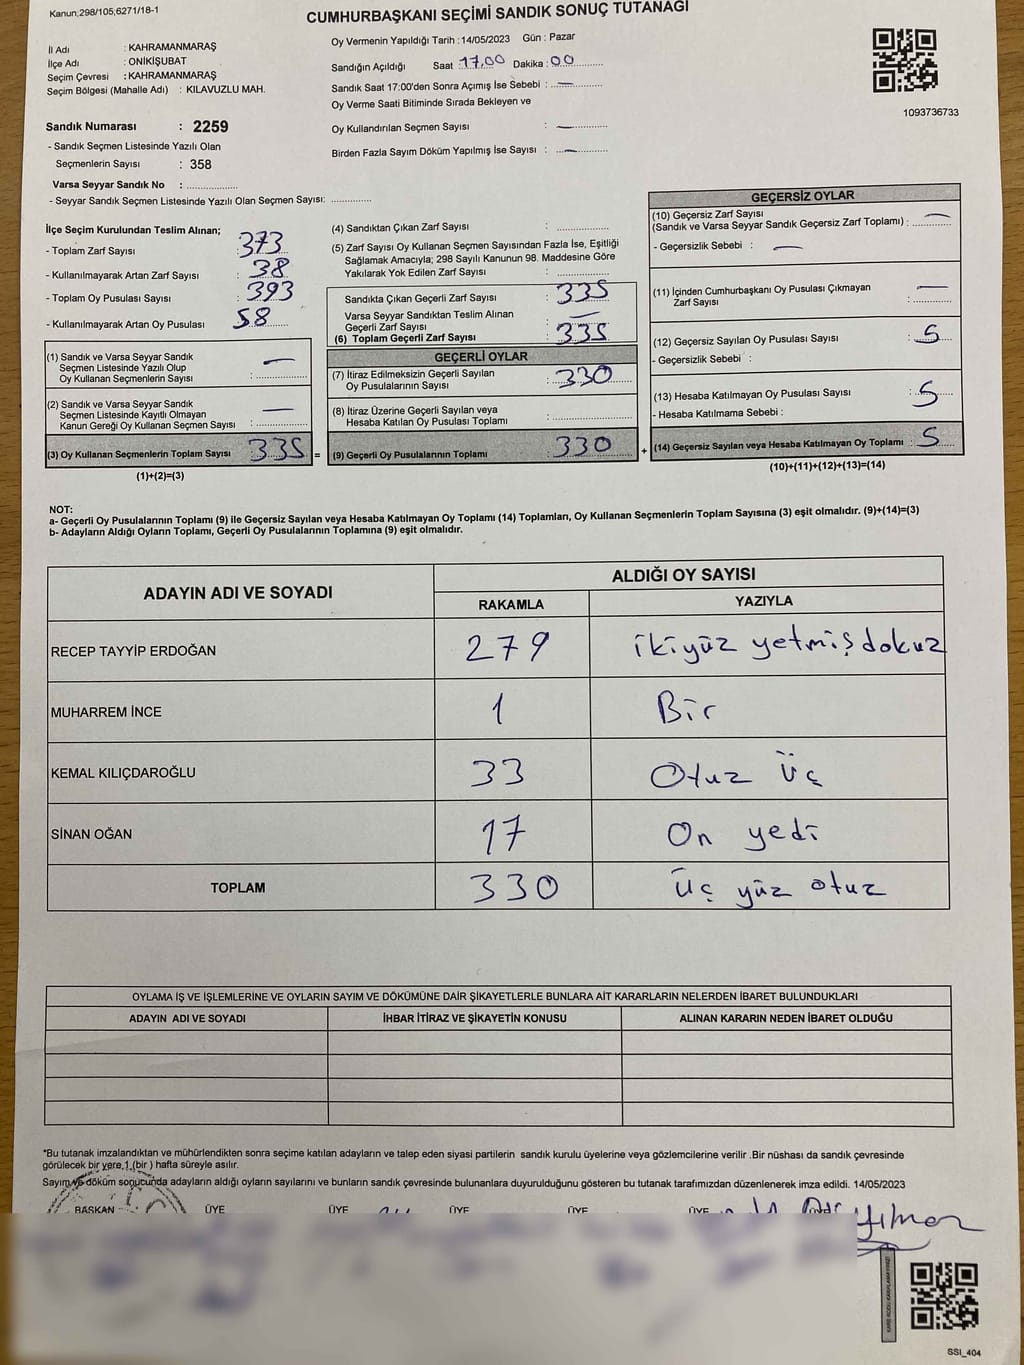 Kanun;298/105;6271/18-1
CUMHURBAŞKANI SEÇİMİ SANDIK SONUÇ TUTANAĞI
İl Adı : KAHRAMANMARAŞ
İlçe Adı : ONİKİŞUBAT
Seçim Çevresi : KAHRAMANMARAŞ
Seçim Bölgesi (Mahalle Adı) : KILAVUZLU MAH.
Sandık Numarası : 2259
- Sandık Seçmen Listesinde Yazılı Olan
Seçmenlerin Sayısı : 358
Varsa Seyyar Sandık No :
- Seyyar Sandık Seçmen Listesinde Yazılı Olan Seçmen Sayısı:
Oy Vermenin Yapıldığı Tarih : 14/05/2023 Gün : Pazar
Sandığın Açıldığı Saat 17.00 Dakika : 00
Sandık Saat 17:00'den Sonra Açımış İse Sebebi : —
Oy Verme Saati Bitiminde Sırada Bekleyen ve
Oy Kullandırılan Seçmen Sayısı : —
Birden Fazla Sayım Döküm Yapılmış İse Sayısı : —
1093736733
İlçe Seçim Kurulundan Teslim Alınan;
- Toplam Zarf Sayısı : 373
- Kullanılmayarak Artan Zarf Sayısı : 38
- Toplam Oy Pusulası Sayısı : 393
- Kullanılmayarak Artan Oy Pusulası : 58
(1) Sandık ve Varsa Seyyar Sandık
Seçmen Listesinde Yazılı Olup
Oy Kullanan Seçmenlerin Sayısı : —
(2) Sandık ve Varsa Seyyar Sandık
Seçmen Listesinde Kayıtlı Olmayan
Kanun Gereği Oy Kullanan Seçmen Sayısı : —
(3) Oy Kullanan Seçmenlerin Toplam Sayısı : 335 =
(1)+(2)=(3)
(4) Sandıktan Çıkan Zarf Sayısı :
(5) Zarf Sayısı Oy Kullanan Seçmen Sayısından Fazla İse, Eşitliği
Sağlamak Amacıyla; 298 Sayılı Kanunun 98. Maddesine Göre
Yakılarak Yok Edilen Zarf Sayısı :
Sandıkta Çıkan Geçerli Zarf Sayısı : 335
Varsa Seyyar Sandıktan Teslim Alınan
Geçerli Zarf Sayısı : —
(6) Toplam Geçerli Zarf Sayısı : 335
GEÇERLİ OYLAR
(7) İtiraz Edilmeksizin Geçerli Sayılan
Oy Pusulalarının Sayısı : 330
(8) İtiraz Üzerine Geçerli Sayılan veya
Hesaba Katılan Oy Pusulası Toplamı :
(9) Geçerli Oy Pusulalarının Toplamı : 330 +
GEÇERSİZ OYLAR
(10) Geçersiz Zarf Sayısı
(Sandık ve Varsa Seyyar Sandık Geçersiz Zarf Toplamı) : —
- Geçersizlik Sebebi : —
(11) İçinden Cumhurbaşkanı Oy Pusulası Çıkmayan
Zarf Sayısı : —
(12) Geçersiz Sayılan Oy Pusulası Sayısı : 5
- Geçersizlik Sebebi :
(13) Hesaba Katılmayan Oy Pusulası Sayısı : 5
- Hesaba Katılmama Sebebi :
(14) Geçersiz Sayılan veya Hesaba Katılmayan Oy Toplamı : 5
(10)+(11)+(12)+(13)=(14)
NOT:
a- Geçerli Oy Pusulalarının Toplamı (9) ile Geçersiz Sayılan veya Hesaba Katılmayan Oy Toplamı (14) Toplamları, Oy Kullanan Seçmenlerin Toplam Sayısına (3) eşit olmalıdır. (9)+(14)=(3)
b- Adayların Aldığı Oyların Toplamı, Geçerli Oy Pusulalarının Toplamına (9) eşit olmalıdır.
ADAYIN ADI VE SOYADI
ALDIĞI OY SAYISI
RAKAMLA YAZIYLA
RECEP TAYYİP ERDOĞAN 279 ikiyüz yetmiş dokuz
MUHARREM İNCE 1 Bir
KEMAL KILIÇDAROĞLU 33 Otuz Üç
SİNAN OĞAN 17 On yedi
TOPLAM 330 Üç yüz otuz
OYLAMA İŞ VE İŞLEMLERİNE VE OYLARIN SAYIM VE DÖKÜMÜNE DAİR ŞİKAYETLERLE BUNLARA AİT KARARLARIN NELERDEN İBARET BULUNDUKLARI
ADAYIN ADI VE SOYADI İHBAR İTİRAZ VE ŞİKAYETİN KONUSU ALINAN KARARIN NEDEN İBARET OLDUĞU
*Bu tutanak imzalandıktan ve mühürlendikten sonra seçime katılan adayların ve talep eden siyasi partilerin sandık kurulu üyelerine veya gözlemcilerine verilir .Bir nüshası da sandık çevresinde
görülecek bir yere 1 (bir ) hafta süreyle asılır.
Sayım ve döküm sonucunda adayların aldığı oyların sayılarını ve bunların sandık çevresinde bulunanlara duyurulduğunu gösteren bu tutanak tarafımızdan düzenlenerek imza edildi. 14/05/2023
BAŞKAN ÜYE ÜYE ÜYE ÜYE ÜYE
SSI_404